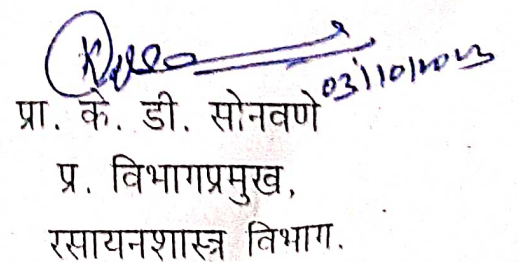 03/10/2023
प्रा. के. डी. सोनवणे
प्र. विभागप्रमुख,
रसायनशास्त्र विभाग.